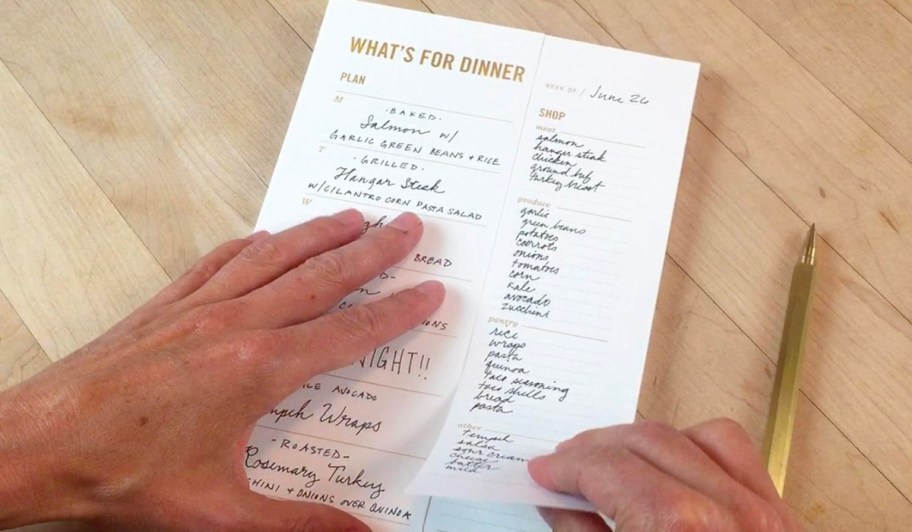 WHAT'S FOR DINNER
PLAN
M
·BAKED·
Salmon w/
GARLIC GREEN BEANS + RICE
T
·GRILLED·
Hangar Steak
W/CILANTRO CORN PASTA SALAD
W
BREAD
NIGHT!!
AVOCADO
Wraps
-ROASTED-
Rosemary Turkey
+ ONIONS OVER QUINOA
WEEK OF / June 26
SHOP
meat
salmon
hanger steak
chicken
ground beef
turkey breast
produce
garlic
green beans
potatoes
carrots
onions
tomatoes
corn
kale
avocado
zucchini
pantry
rice
wraps
pasta
quinoa
taco seasoning
taco shells
bread
pasta
other
tempeh
salsa
sour cream
cheese
butter
milk